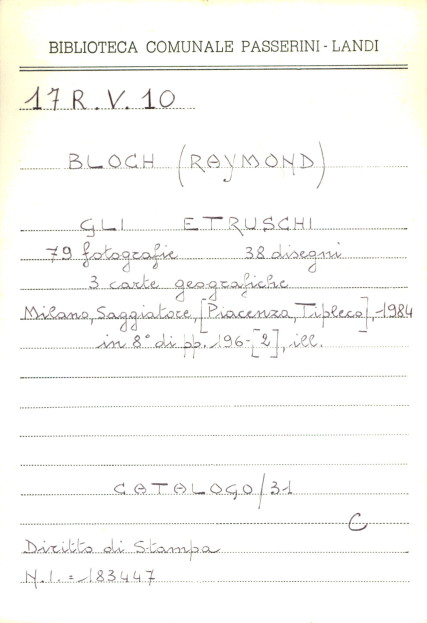 BIBLIOTECA COMUNALE PASSERINI - LANDI
17 R. V. 10
BLOCH (RAYMOND)
GLI ETRUSCHI
79 fotografie 38 disegni
3 carte geografiche
Milano, Saggiatore, [Piacenza, Tipleco], 1984
in 8° di pp. 196-[2], ill.
CATALOGO/31
C
Diritto di Stampa
N.I. = 183447